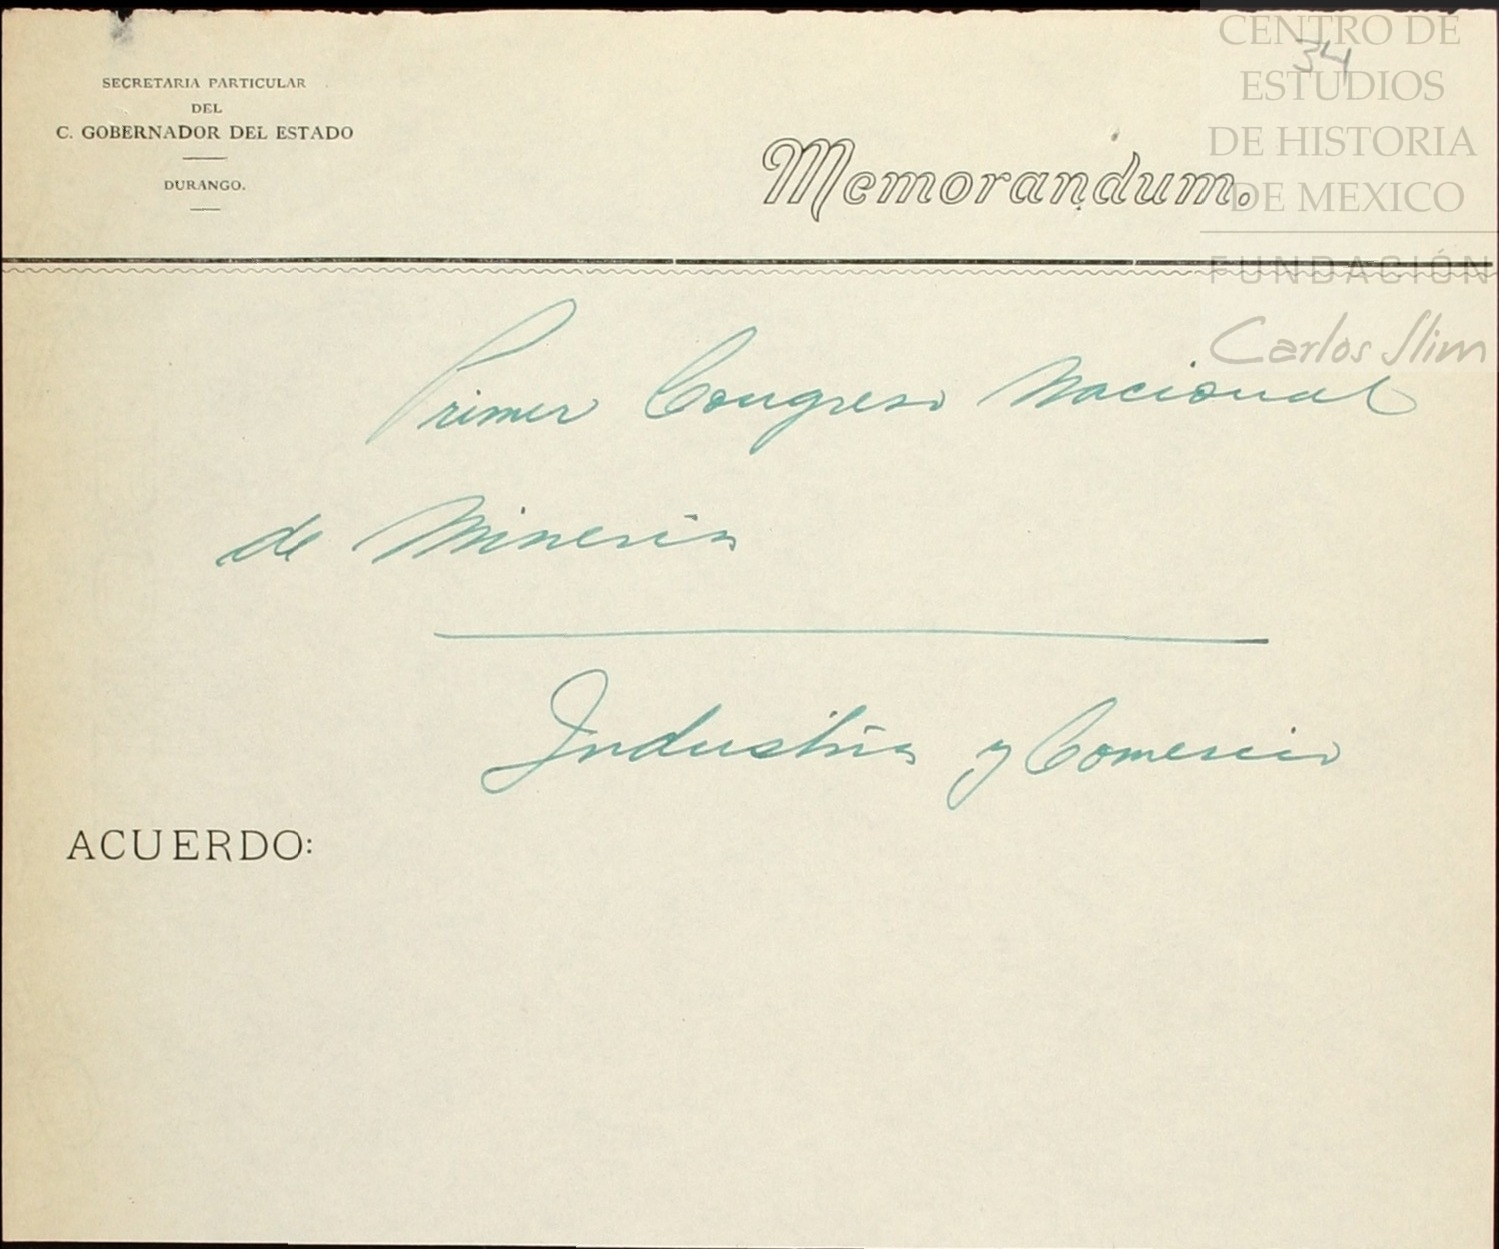 SECRETARIA PARTICULAR
DEL
C. GOBERNADOR DEL ESTADO
DURANGO.
Memorandum.
34
CENTRO DE
ESTUDIOS
DE HISTORIA
DE MEXICO
FUNDACIÓN
Carlos Slim
Primer Congreso Nacional
de Mineria
Industria y Comercio
ACUERDO: